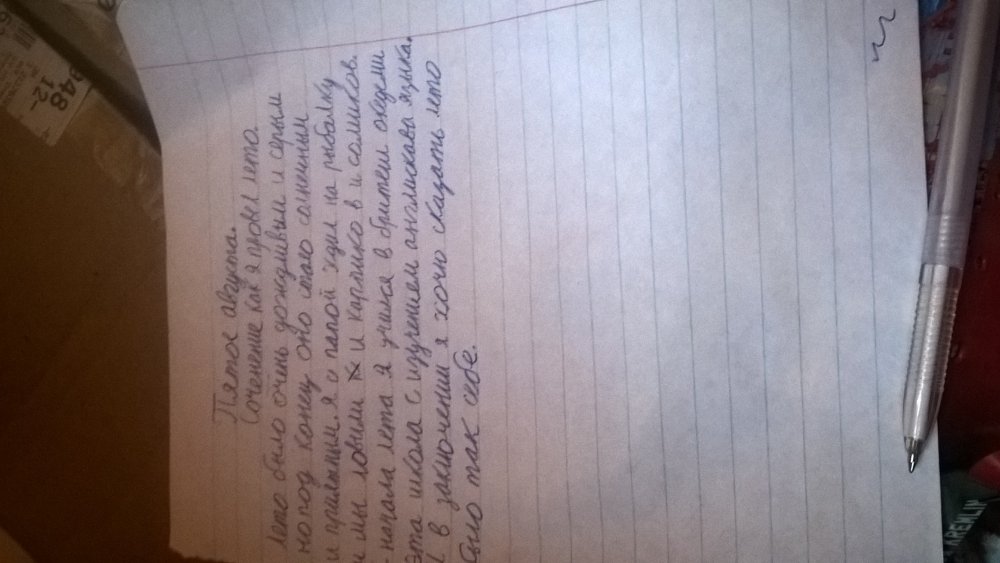 Пятое августа.
Соченение как я провёл лето.
Лето было очень дождливым и серым
но под конец оно стало солнечным
и приятным. я с папой ждил на рыбалку
и мы ловили и карпико в и сомиков.
начала лета я учился в бритеш окедеми
эта школа с изучением англискава языка.
в заключении я хочю сказать лето
было так себе.
348
12-
KREMLIN